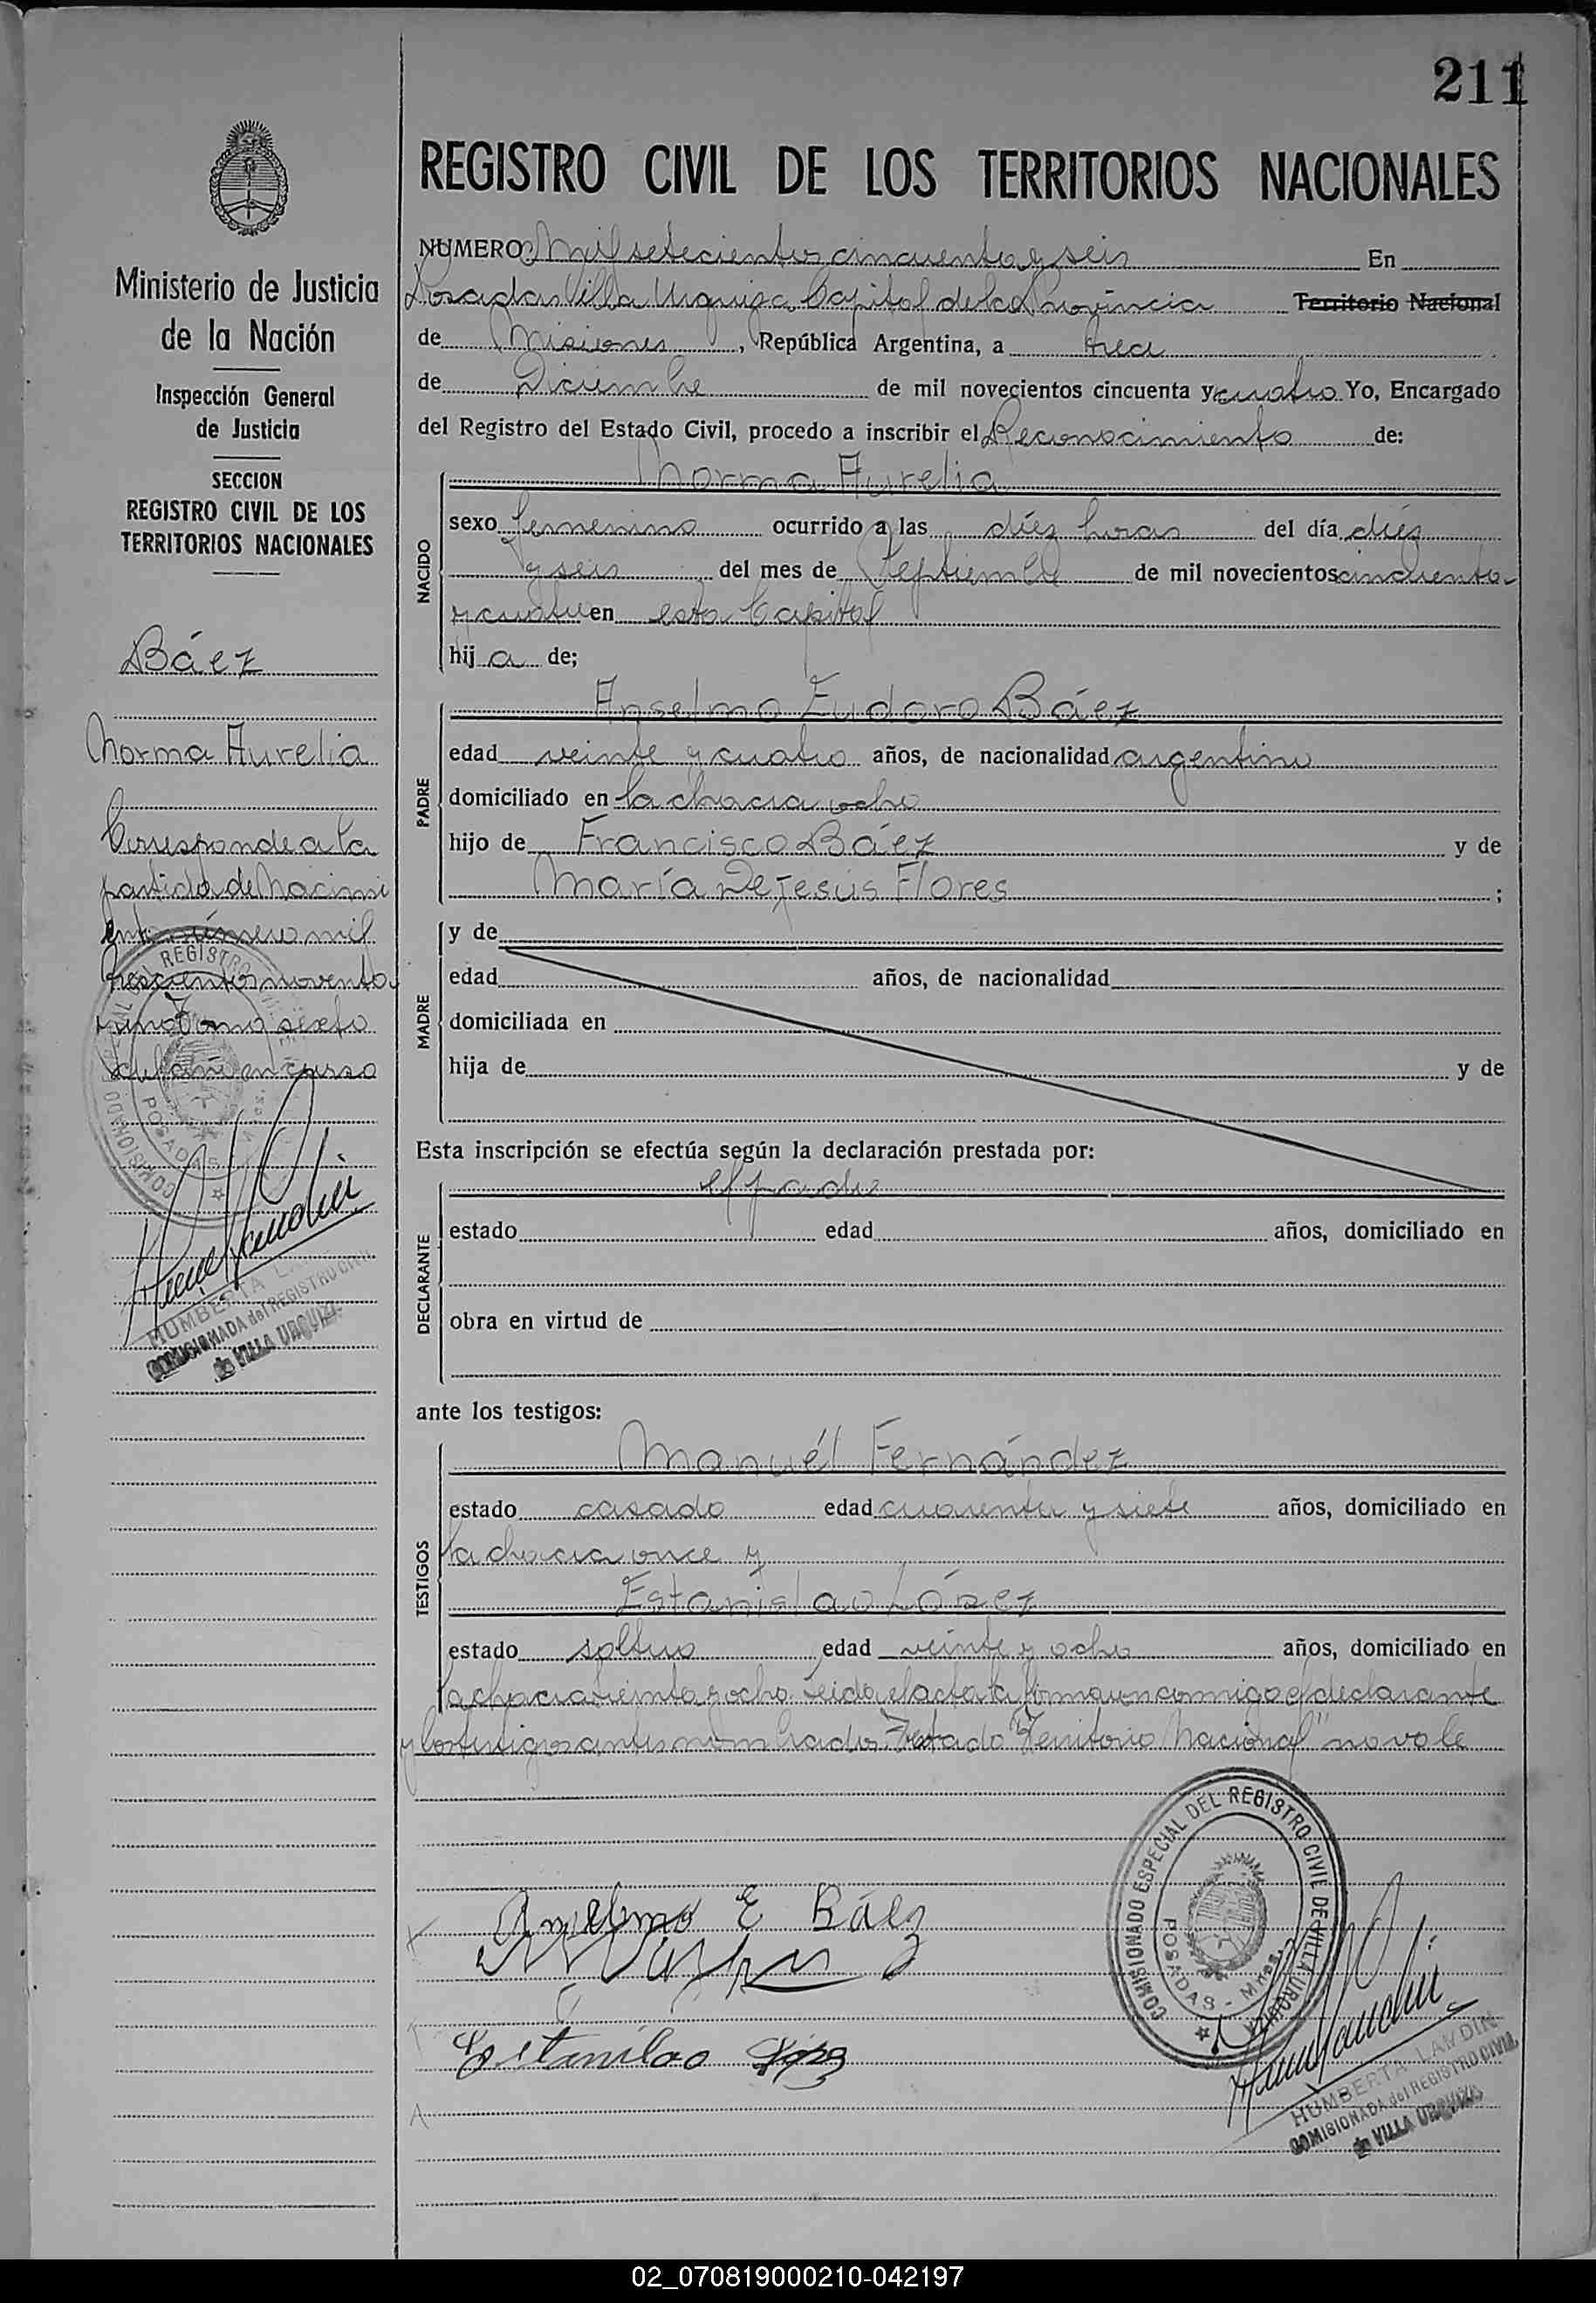 211
REGISTRO CIVIL DE LOS TERRITORIOS NACIONALES
Ministerio de Justicia
de la Nación
Inspección General
de Justicia
SECCION
REGISTRO CIVIL DE LOS
TERRITORIOS NACIONALES
Báez
Norma Aurelia
Corresponde a la
partida de Nacimi
ento número mil
trescientos noventa
y uno Tomo sexto
del año en curso
HUMBERTA LANDIN
COMISIONADA del REGISTRO CIVIL
de VILLA URQUIZA
NUMERO Mil setecientos cincuenta y seis En
Posadas Villa Urquiza Capital de la Provincia Territorio Nacional
de Misiones, República Argentina, a tres
de Diciembre de mil novecientos cincuenta y cuatro Yo, Encargado
del Registro del Estado Civil, procedo a inscribir el Reconocimiento de:
NACIDO
Norma Aurelia
sexo femenino ocurrido a las diéz horas del día diéz
y seis del mes de Septiembre de mil novecientos cincuenta
y cuatro en esta Capital
hij a de;
PADRE
Anselmo Eudoro Báez
edad veinte y cuatro años, de nacionalidad argentino
domiciliado en la chacra ocho
hijo de Francisco Báez y de
María De Jesús Flores ;
MADRE
y de
edad años, de nacionalidad
domiciliada en
hija de y de
Esta inscripción se efectúa según la declaración prestada por:
DECLARANTE
el padre
estado edad años, domiciliado en
obra en virtud de
ante los testigos:
TESTIGOS
Manuél Fernández
estado casado edad cuarenta y siete años, domiciliado en
la chacra once y
Estanislao López
estado soltero edad veinte y ocho años, domiciliado en
la chacra treinta y ocho. Leida el acta la firmaron conmigo el declarante
y los testigos antes nombrados. Testado "Territorio Nacional" no vale
Anselmo E Báez
Estanilao López
COMISIONADO ESPECIAL DEL REGISTRO CIVIL DE VILLA URQUIZA
POSADAS - Mnes.
HUMBERTA LANDIN
COMISIONADA del REGISTRO CIVIL
de VILLA URQUIZA
02_070819000210-042197